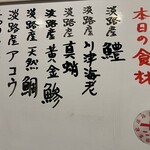 本日の食材
淡路産 鱧
淡路産 川津海老
淡路産 真蛸
淡路産 黄金鰺
淡路産 天然鯛
アコウ